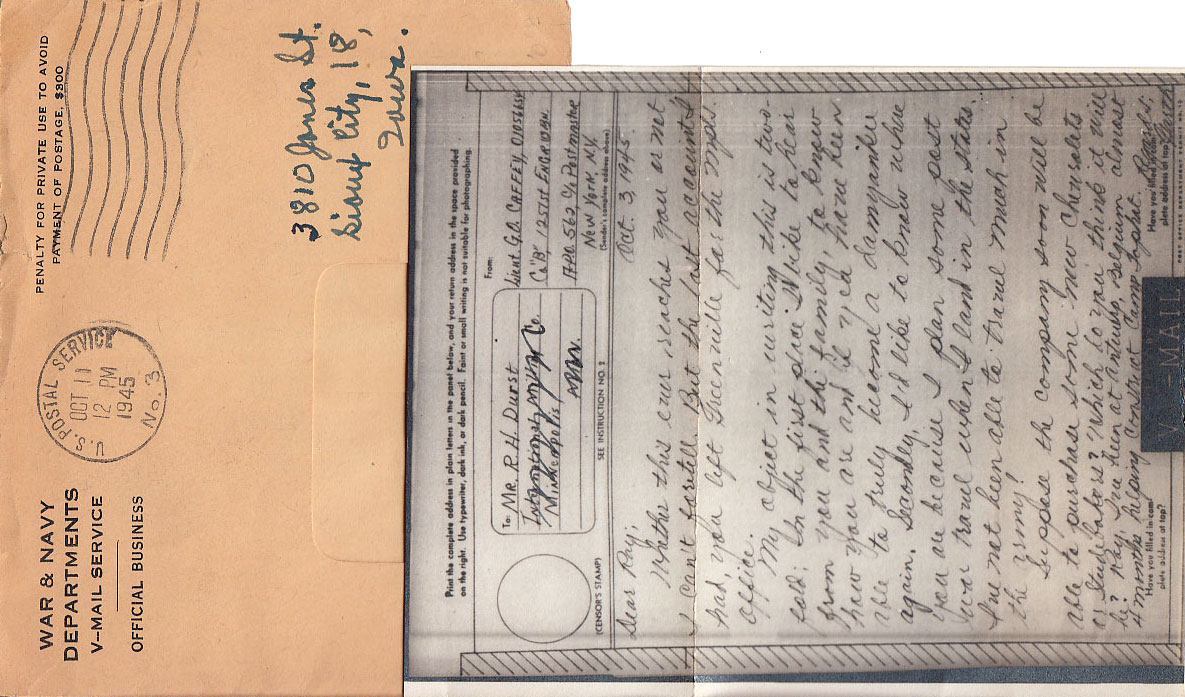 WAR & NAVY
DEPARTMENTS
V-MAIL SERVICE
OFFICIAL BUSINESS
U.S. POSTAL SERVICE
OCT 11
12 PM
1945
No. 3
PENALTY FOR PRIVATE USE TO AVOID
PAYMENT OF POSTAGE, $300
3810 Jones St.
Sioux City, 18,
Iowa.
Print the complete address in plain letters in the panel below, and your return address in the space provided
on the right. Use typewriter, dark ink, or dark pencil. Faint or small writing is not suitable for photographing.
To: MR. R. H. DURST
International Co.
Minneapolis
MINN.
From:
Lieut G.O. CAFFEY, O1056
Co "B", 1251ST ENGR
APO 562 C/o Postmaster
NEW YORK, N.Y.
(Sender's complete address above)
(CENSOR'S STAMP)
SEE INSTRUCTION NO. 2
Oct. 3, 1945.
Dear Ray;
Whether this ever reaches you or not
I can't foretell. But the last account I
had, you left Greenville for the Mpls
office.
My object in writing this is two-
fold: In the first place I'd like to hear
from you and the family, to know
how you are and if y'ca have been
able to truly become a damyankee
again. Secondly, I'd like to know where
you are because I plan some post
war travel when I land in the states.
I've not been able to travel much in
the army!
Suppose the company soon will be
able to purchase some new Chevrolets
or Studebakers? Which do you think it will
be? Ray, I've been at Antwerp, Belgium almost
4 months helping construct Camp Tophat. Regards,
Have you filled in com-
plete address at top?
Have you filled in com-
plete address at top?
V - MAIL